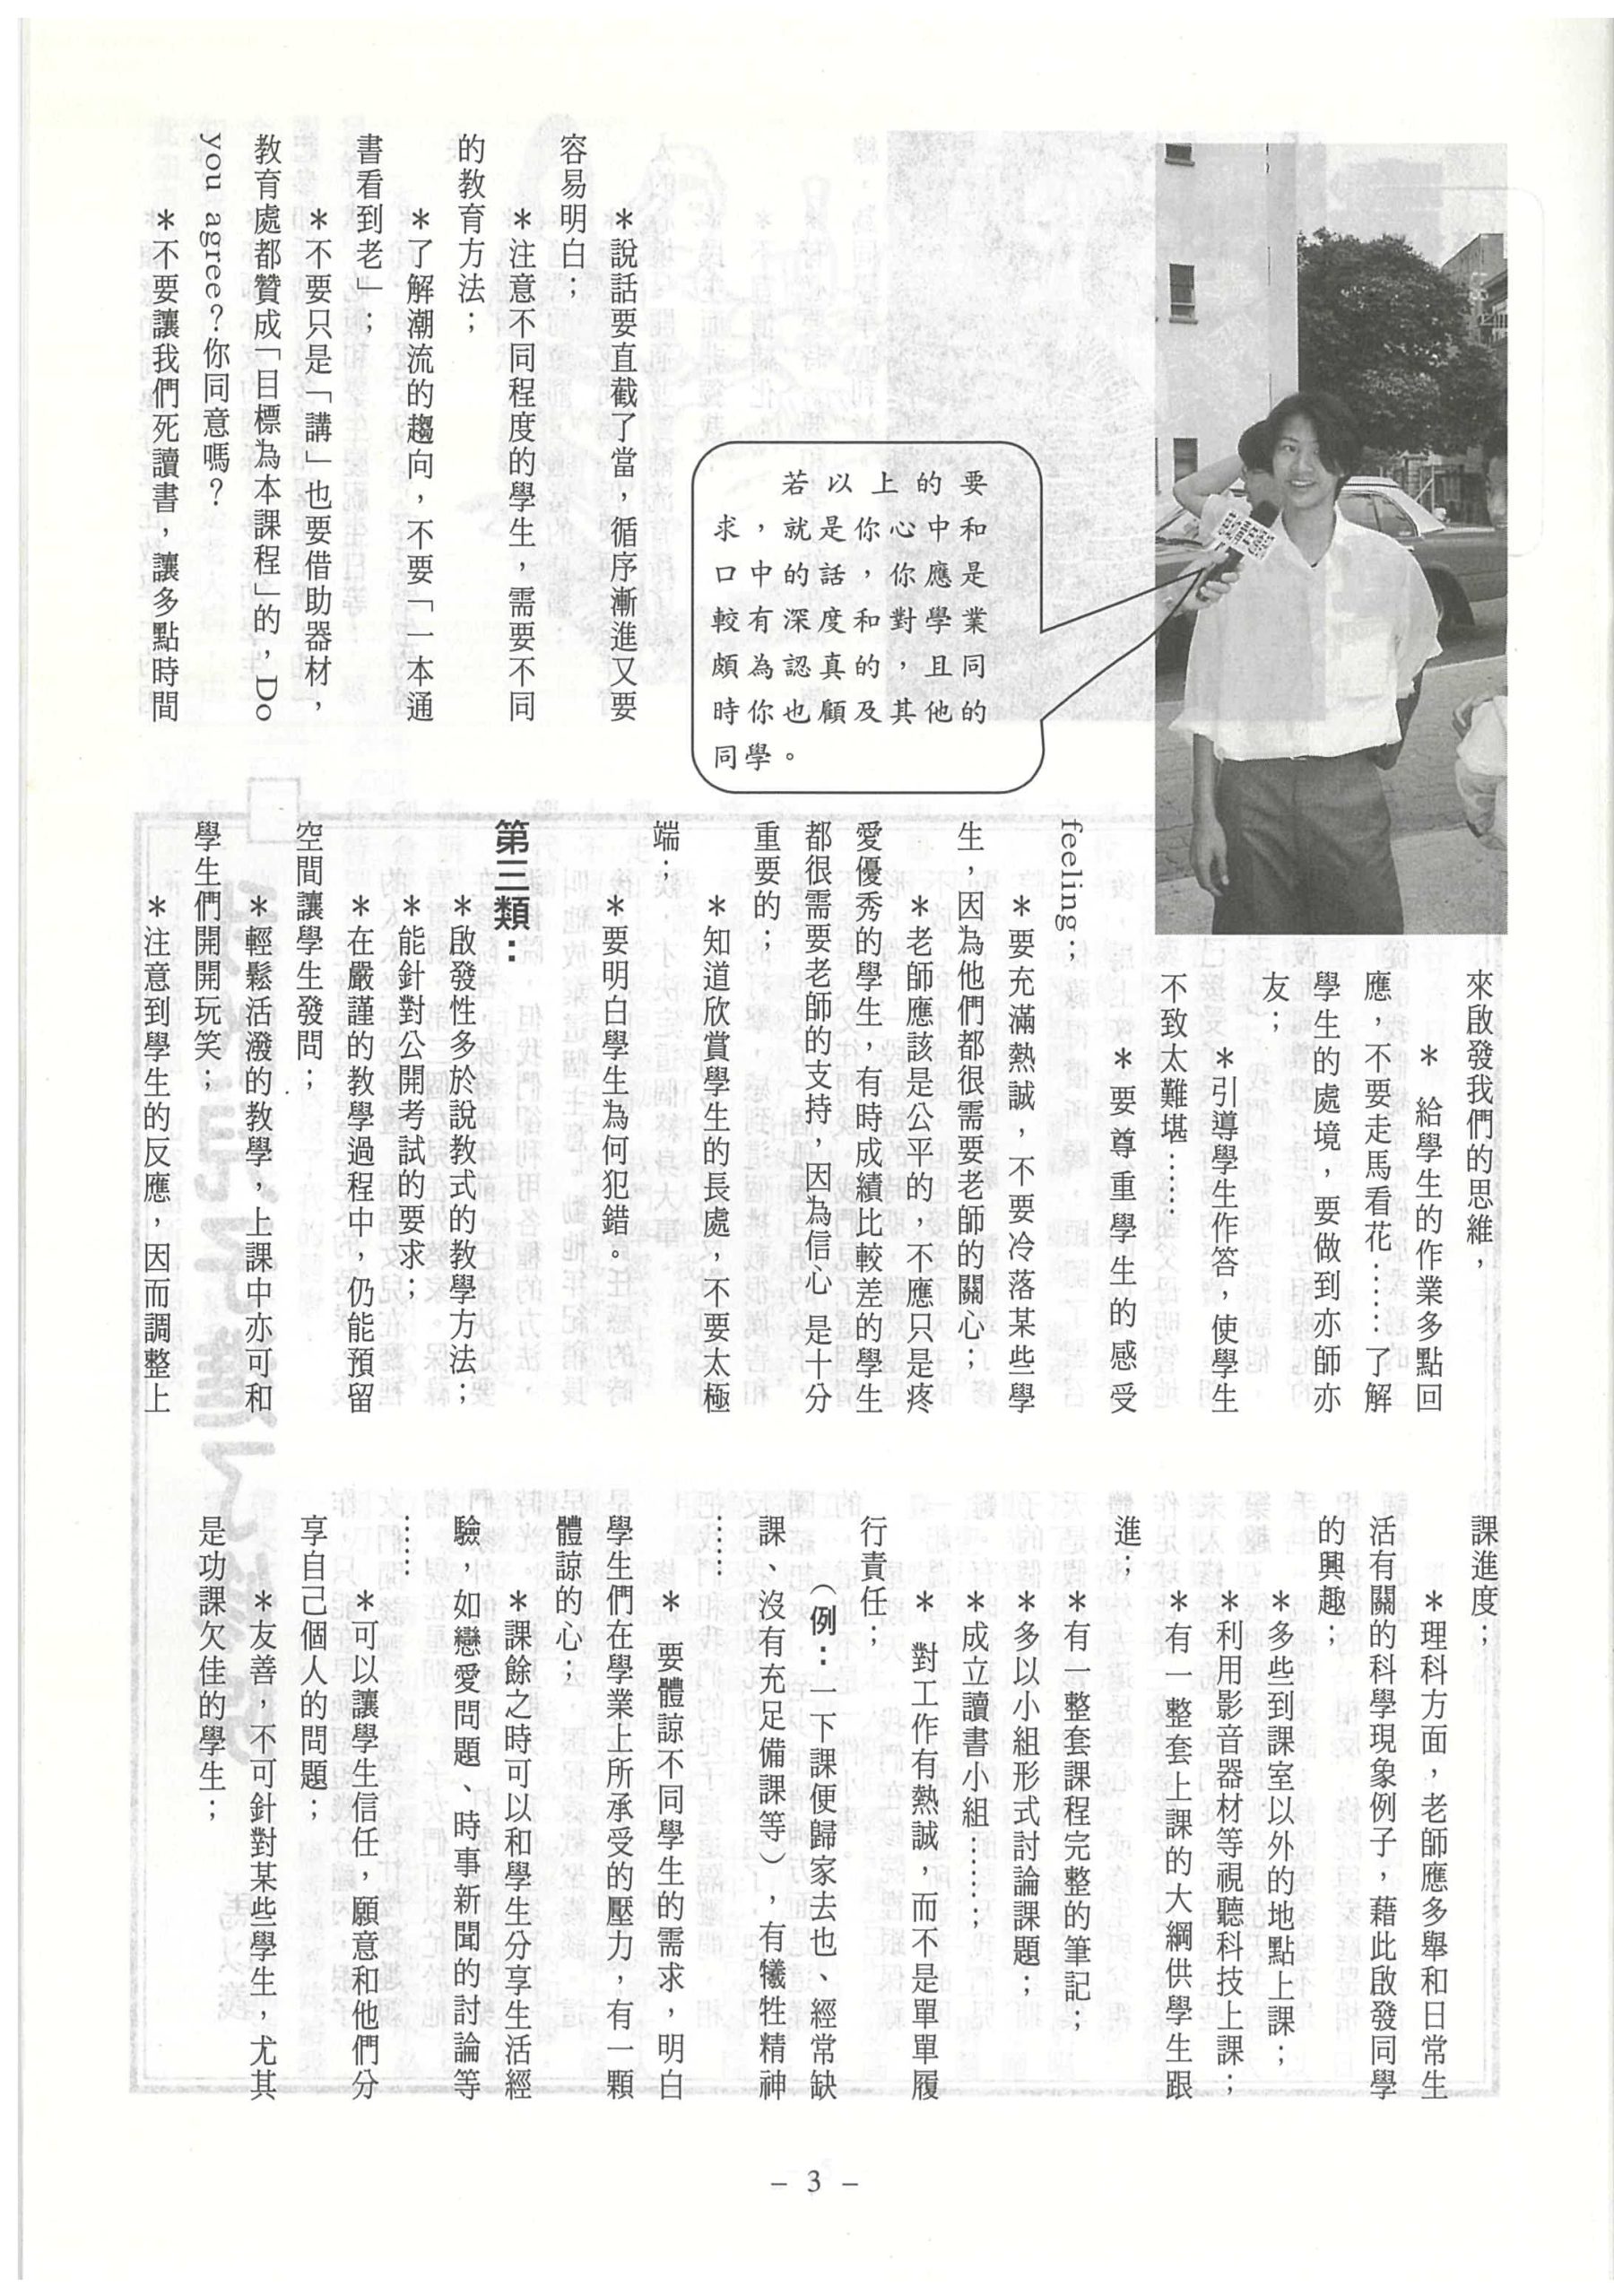 若以上的要
求，就是你心中和
口中的話，你應是
較有深度和對學業
頗為認真的，且同
時你也顧及其他的
同學。
＊說話要直截了當，循序漸進又要
容易明白；
＊注意不同程度的學生，需要不同
的教育方法；
＊了解潮流的趨向，不要「一本通
書看到老」；
＊不要只是「講」也要借助器材，
教育處都贊成「目標為本課程」的，Do
you agree？你同意嗎？
＊不要讓我們死讀書，讓多點時間
來啟發我們的思維，
＊ 給學生的作業多點回
應，不要走馬看花……了解
學生的處境，要做到亦師亦
友；
＊引導學生作答，使學生
不致太難堪……
＊要尊重學生的感受
feeling；
＊要充滿熱誠，不要冷落某些學
生，因為他們都很需要老師的關心；
＊老師應該是公平的，不應只是疼
愛優秀的學生，有時成績比較差的學生
都很需要老師的支持，因為信心 是十分
重要的；
＊知道欣賞學生的長處，不要太極
端；
＊要明白學生為何犯錯。
第三類：
＊啟發性多於說教式的教學方法；
＊能針對公開考試的要求；
＊在嚴謹的教學過程中，仍能預留
空間讓學生發問；
＊輕鬆活潑的教學，上課中亦可和
學生們開開玩笑；
＊注意到學生的反應，因而調整上
課進度；
＊理科方面，老師應多舉和日常生
活有關的科學現象例子，藉此啟發同學
的興趣；
＊多些到課室以外的地點上課；
＊利用影音器材等視聽科技上課；
＊有一整套上課的大綱供學生跟
進；
＊有一整套課程完整的筆記；
＊多以小組形式討論課題；
＊成立讀書小組……；
＊ 對工作有熱誠，而不是單單履
行責任；
（例：一下課便歸家去也、經常缺
課、沒有充足備課等），有犧牲精神
……
＊ 要體諒不同學生的需求，明白
學生們在學業上所承受的壓力，有一顆
體諒的心；
＊課餘之時可以和學生分享生活經
驗，如戀愛問題、時事新聞的討論等
……
＊可以讓學生信任，願意和他們分
享自己個人的問題；
＊友善，不可針對某些學生，尤其
是功課欠佳的學生；
– 3 –